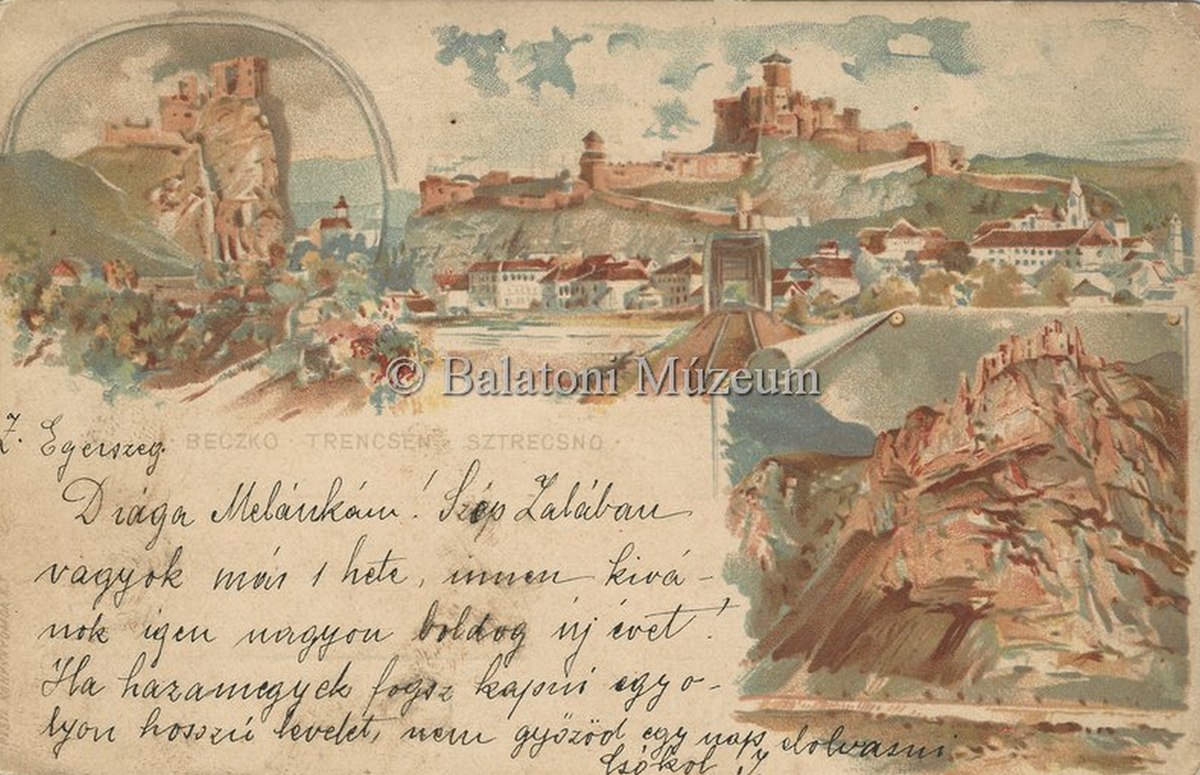 © Balatoni Múzeum
BECZKO TRENCSÉN SZTRECSNO
Z. Egerszeg.
Drága Melánkám! Szép Zalában
vagyok már 1 hete, innen kivá-
nok igen nagyon boldog új évet!
Ha hazamegyek fogsz kapni egy o-
lyan hosszú levelet, nem győzöd egy nap elolvasni
Csókol